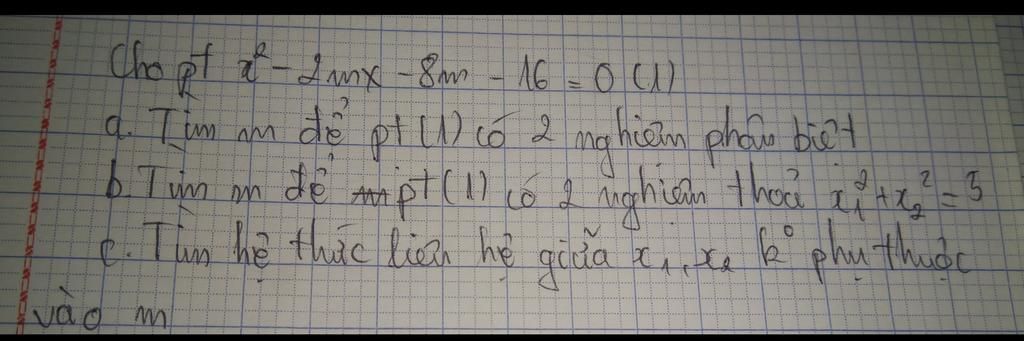 Cho pt x² - 2mx - 8m - 16 = 0 (1)
a. Tìm m để pt (1) có 2 nghiệm phân biệt
b. Tìm m để pt (1) có 2 nghiệm thoả x₁² + x₂² = 5
c. Tìm hệ thức liên hệ giữa x₁, x₂ k⁰ phụ thuộc
vào m